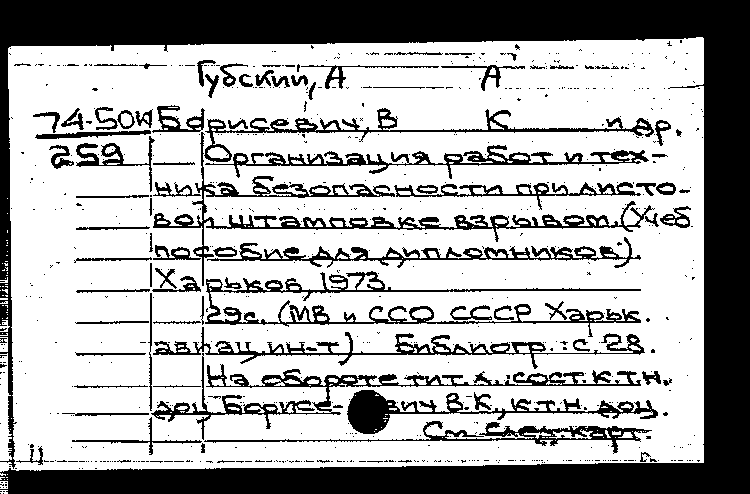 Губский, А А
74-50И Борисевич, В К и др.
259 Организация работ и тех-
ника безопасности при листо-
вой штамповке взрывом. (Учеб
пособие для дипломников).
Харьков, 1973.
29с. (МВ и ССО СССР Харьк.
авиац ин-т) Библиогр.: с. 28.
На обороте тит. л.: сост. к.т.н.
доц Борисе- вич В.К., к.т.н. доц.
См след. карт.
11